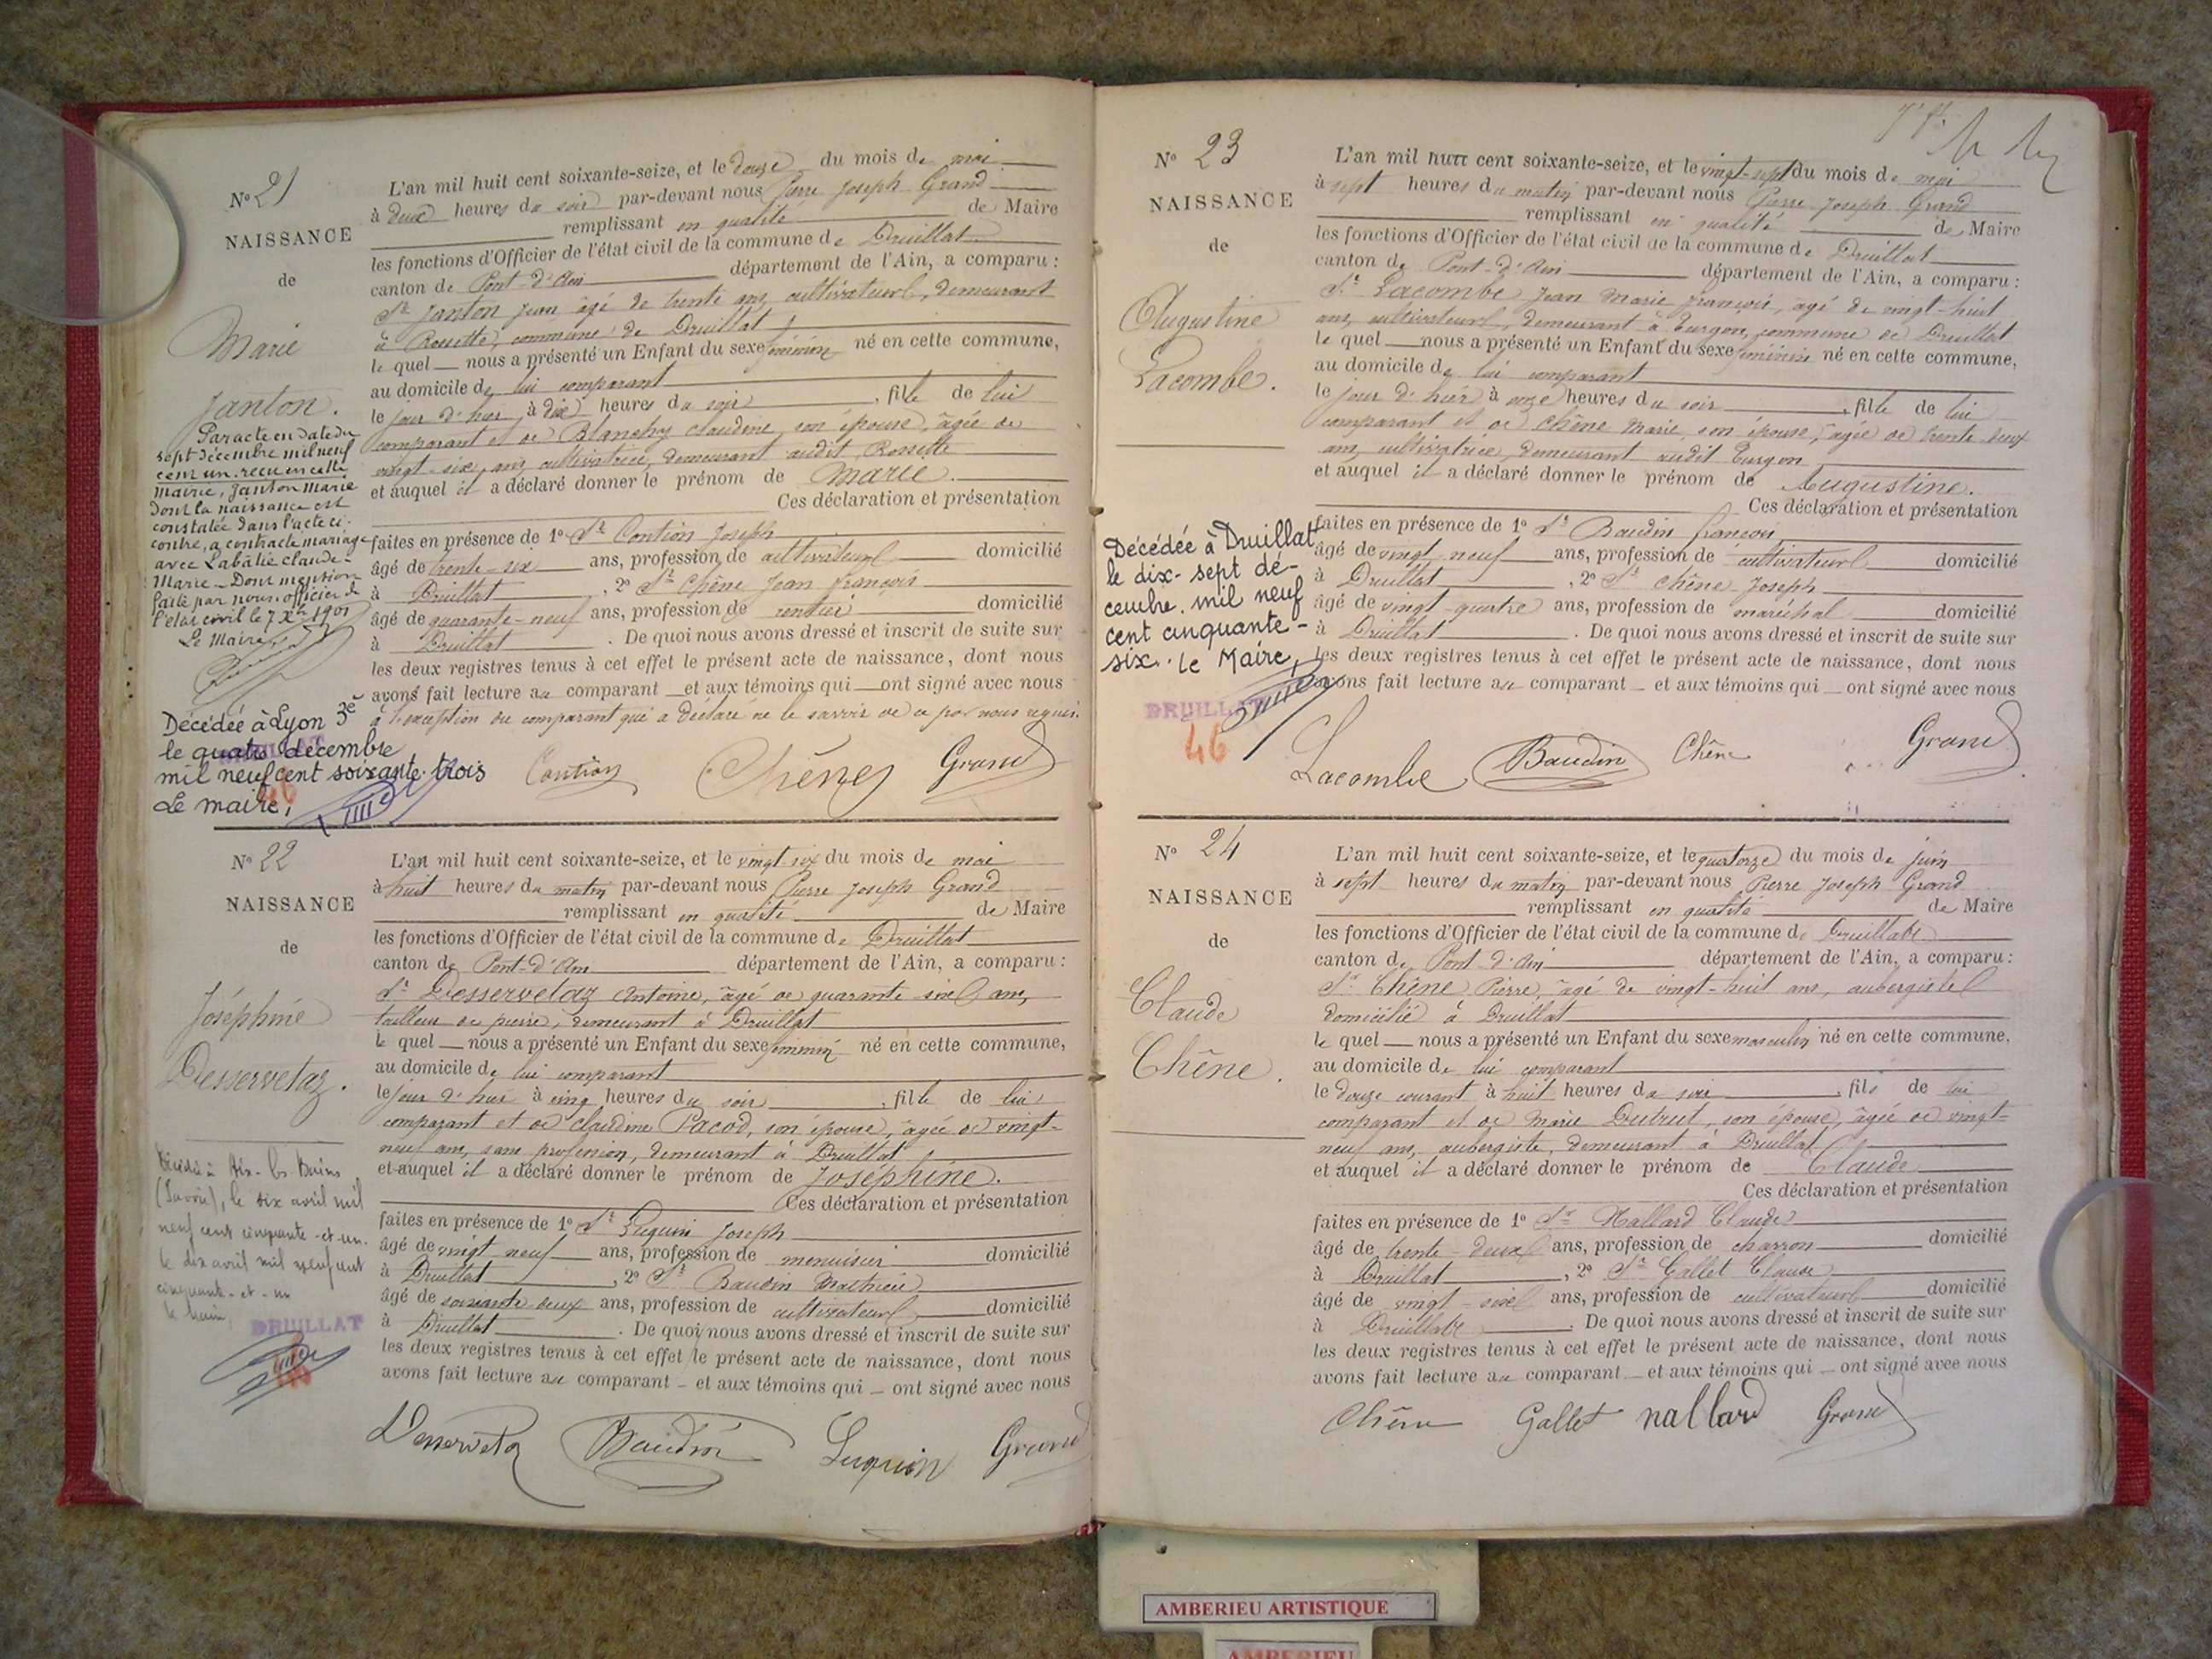 N° 21
NAISSANCE
de
Marie
Janton.
Par acte en date du
sept décembre mil neuf
cent un. reçu en cette
mairie, Janton Marie
dont la naissance est
constatée dans l'acte ci-
contre, a contracté mariage
avec Labâlie Claude-
Marie. Dont mention
faite par nous officier de
l'état civil le 7 Xbre 1901
Le Maire,
Décédée à Lyon 3e
le quatre décembre
mil neuf cent soixante-trois
Le maire,
L'an mil huit cent soixante-seize, et le douze du mois de mai
à deux heures du soir par-devant nous Pierre Joseph Grand
remplissant en qualité de Maire
les fonctions d'Officier de l'état civil de la commune de Druillat
canton de Pont-d'Ain département de l'Ain, a comparu :
Sr Janton Jean âgé de trente ans, cultivateur, demeurant
à Rossette, commune de Druillat
le quel nous a présenté un Enfant du sexe féminin né en cette commune,
au domicile de lui comparant
le jour d'hier à dix heures du soir, fille de lui
comparant et de Blanchy Claudine, son épouse, âgée de
vingt-six ans, cultivatrice, demeurant audit Rossette
et auquel il a déclaré donner le prénom de Marie.
Ces déclaration et présentation
faites en présence de 1° Sr Contion Joseph
âgé de trente-six ans, profession de cultivateur domicilié
à Druillat, 2° Sr Chêne Jean François
âgé de quarante-neuf ans, profession de rentier domicilié
à Druillat. De quoi nous avons dressé et inscrit de suite sur
les deux registres tenus à cet effet le présent acte de naissance, dont nous
avons fait lecture au comparant et aux témoins qui ont signé avec nous
à l'exception du comparant qui a déclaré ne le savoir de ce par nous requis.
Contion Chêne Grand
N° 22
NAISSANCE
de
Joséphine
Desservetaz.
Décédée à Aix-les-Bains
(Savoie), le six avril mil
neuf cent cinquante-et-un.
le dix avril mil neuf cent
cinquante-et-un
le Maire,
DRUILLAT
L'an mil huit cent soixante-seize, et le vingt-six du mois de mai
à huit heures du matin par-devant nous Pierre Joseph Grand
remplissant en qualité de Maire
les fonctions d'Officier de l'état civil de la commune de Druillat
canton de Pont-d'Ain département de l'Ain, a comparu :
Sr Desservetaz Antoine, âgé de quarante six ans,
tailleur de pierre, demeurant à Druillat
le quel nous a présenté un Enfant du sexe féminin né en cette commune,
au domicile de lui comparant
le jour d'hier à cinq heures du soir, fille de lui
comparant et de Claudine Pacod, son épouse, âgée de vingt-
neuf ans, sans profession, demeurant à Druillat
et auquel il a déclaré donner le prénom de Joséphine.
Ces déclaration et présentation
faites en présence de 1° Sr Luquin Joseph
âgé de vingt neuf ans, profession de menuisier domicilié
à Druillat, 2° Sr Baudin Mathieu
âgé de soixante deux ans, profession de cultivateur domicilié
à Druillat. De quoi nous avons dressé et inscrit de suite sur
les deux registres tenus à cet effet le présent acte de naissance, dont nous
avons fait lecture au comparant et aux témoins qui ont signé avec nous
Desservetaz Baudin Luquin Grand
N° 23
NAISSANCE
de
Augustine
Lacombe.
Décédée à Druillat
le dix-sept dé-
cembre mil neuf
cent cinquante-
six. Le Maire,
DRUILLAT
46
L'an mil huit cent soixante-seize, et le vingt-sept du mois de mai
à sept heures du matin par-devant nous Pierre Joseph Grand
remplissant en qualité de Maire
les fonctions d'Officier de l'état civil de la commune de Druillat
canton de Pont-d'Ain département de l'Ain, a comparu :
Sr Lacombe Jean Marie François, âgé de vingt-huit
ans, cultivateur, demeurant à Turgon, commune de Druillat
le quel nous a présenté un Enfant du sexe féminin né en cette commune,
au domicile de lui comparant
le jour d'hier à onze heures du soir, fille de lui
comparant et de Chêne Marie, son épouse, âgée de trente-deux
ans, cultivatrice, demeurant audit Turgon
et auquel il a déclaré donner le prénom de Augustine.
Ces déclaration et présentation
faites en présence de 1° Sr Baudin François
âgé de vingt neuf ans, profession de cultivateur domicilié
à Druillat, 2° Sr Chêne Joseph
âgé de vingt-quatre ans, profession de maréchal domicilié
à Druillat. De quoi nous avons dressé et inscrit de suite sur
les deux registres tenus à cet effet le présent acte de naissance, dont nous
avons fait lecture au comparant et aux témoins qui ont signé avec nous
Lacombe Baudin Chêne Grand
N° 24
NAISSANCE
de
Claude
Chêne.
L'an mil huit cent soixante-seize, et le quatorze du mois de juin
à sept heures du matin par-devant nous Pierre Joseph Grand
remplissant en qualité de Maire
les fonctions d'Officier de l'état civil de la commune de Druillat
canton de Pont-d'Ain département de l'Ain, a comparu :
Sr Chêne Pierre, âgé de vingt-huit ans, aubergiste
domicilié à Druillat
le quel nous a présenté un Enfant du sexe masculin né en cette commune,
au domicile de lui comparant
le douze courant à huit heures du soir, fils de lui
comparant et de Marie Dutrut, son épouse, âgée de vingt-
neuf ans, aubergiste, demeurant à Druillat
et auquel il a déclaré donner le prénom de Claude
Ces déclaration et présentation
faites en présence de 1° Sr Nallard Claude
âgé de trente-deux ans, profession de charron domicilié
à Druillat, 2° Sr Gallet Claude
âgé de vingt-six ans, profession de cultivateur domicilié
à Druillat. De quoi nous avons dressé et inscrit de suite sur
les deux registres tenus à cet effet le présent acte de naissance, dont nous
avons fait lecture au comparant et aux témoins qui ont signé avec nous
Chêne Gallet nallard Grand
AMBERIEU ARTISTIQUE
AMBERIEU